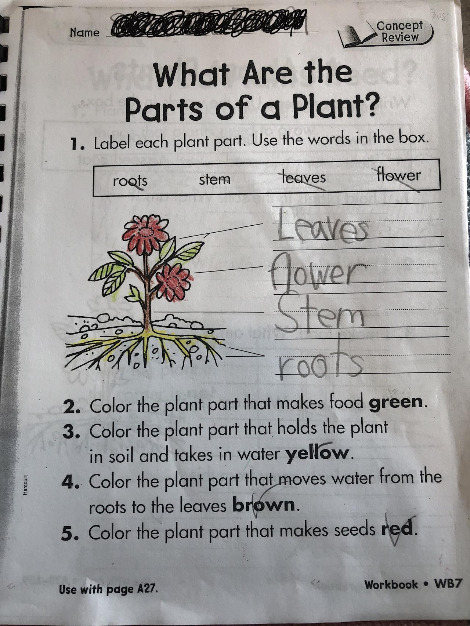 Name
Concept
Review
What Are the
Parts of a Plant?
1. Label each plant part. Use the words in the box.
roots stem leaves flower
Leaves
flower
Stem
roots
2. Color the plant part that makes food green.
3. Color the plant part that holds the plant
in soil and takes in water yellow.
4. Color the plant part that moves water from the
roots to the leaves brown.
5. Color the plant part that makes seeds red.
Harcourt
Use with page A27.
Workbook • WB7